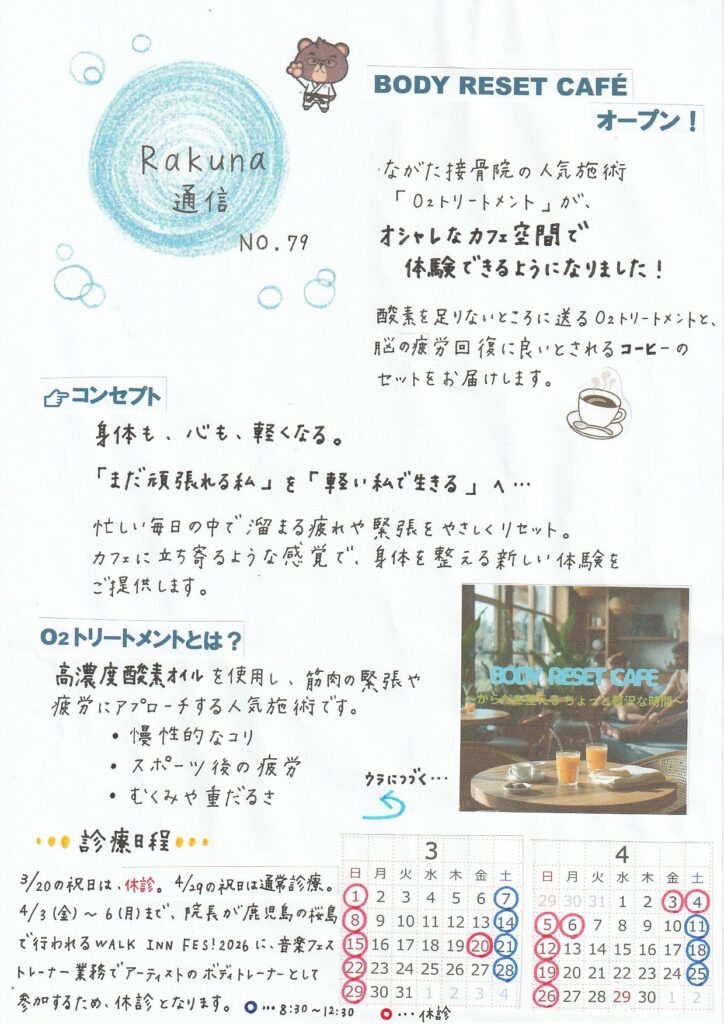 Rakuna
通信
NO.79
BODY RESET CAFÉ
オープン！
ながた接骨院の人気施術
「O2トリートメント」が、
オシャレなカフェ空間で
体験できるようになりました！
酸素を足りないところに送るO2トリートメントと、
脳の疲労回復に良いとされるコーヒーの
セットをお届けします。
コンセプト
身体も、心も、軽くなる。
「まだ頑張れる私」を「軽い私で生きる」へ…
忙しい毎日の中で溜まる疲れや緊張をやさしくリセット。
カフェに立ち寄るような感覚で、身体を整える新しい体験を
ご提供します。
O2トリートメントとは？
高濃度酸素オイルを使用し、筋肉の緊張や
疲労にアプローチする人気施術です。
• 慢性的なコリ
• スポーツ後の疲労
• むくみや重だるさ
BODY RESET CAFE
～からだを整える ちょっと贅沢な時間～
ウラにつづく…
診療日程
3/20の祝日は、休診。4/29の祝日は通常診療。
4/3(金)～6(月)まで、院長が鹿児島の桜島
で行われるWALK INN FES!2026に、音楽フェス
トレーナー業務でアーティストのボディトレーナーとして
参加するため、休診となります。
○…8:30～12:30
○…休診
3
日 月 火 水 木 金 土
1 2 3 4 5 6 7
8 9 10 11 12 13 14
15 16 17 18 19 20 21
22 23 24 25 26 27 28
29 30 31 1 2 3 4
4
日 月 火 水 木 金 土
29 30 31 1 2 3 4
5 6 7 8 9 10 11
12 13 14 15 16 17 18
19 20 21 22 23 24 25
26 27 28 29 30 1 2